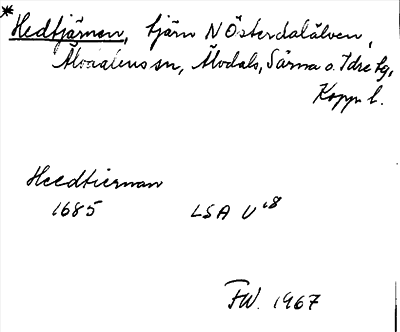 * Hedtjärnen, tjärn N Österdalälven,
Älvdalens sn, Älvdals, Särna o. Idre tg,
Kopp. l.
Heedtiernan
1685 LSA U 18
FW. 1967